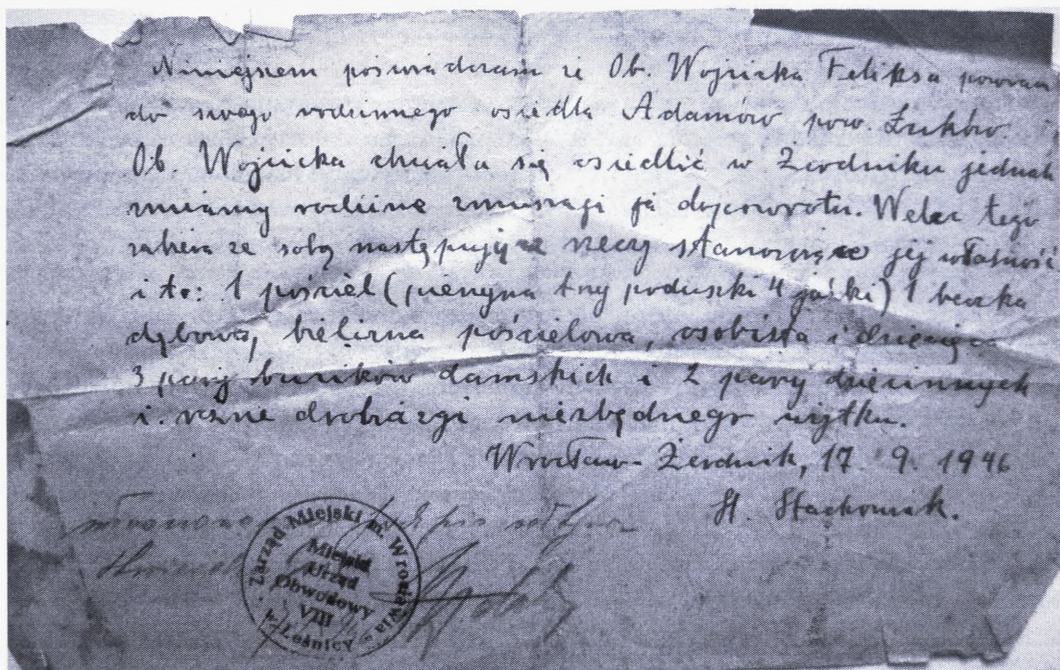 Niniejszem poświadczam że Ob. Wójcicka Feliksa powraca
do swego rodzinnego osiedla Adamów pow. Łuków.
Ob. Wójcicka chciała się osiedlić w Żerdniku jednak
zmiany rodzinne zmuszają ją do powrotu. Wobec tego
zabiera ze sobą następujące rzeczy stanowiące jej własność
i to: 1 pościel (pierzyna trzy poduszki 4 jaśki) 1 beczka
dębowa, bielizna pościelowa, osobista i dziecięca
3 pary bucików damskich i 2 pary dziecinnych
i różne drobiazgi niezbędnego użytku.
Wrocław-Żerdnik, 17. 9. 1946
St. Stachowiak.
Zarząd Miejski m. Wrocławia
Miejski
Urząd
Obwodowy
VIII
w Leśnicy